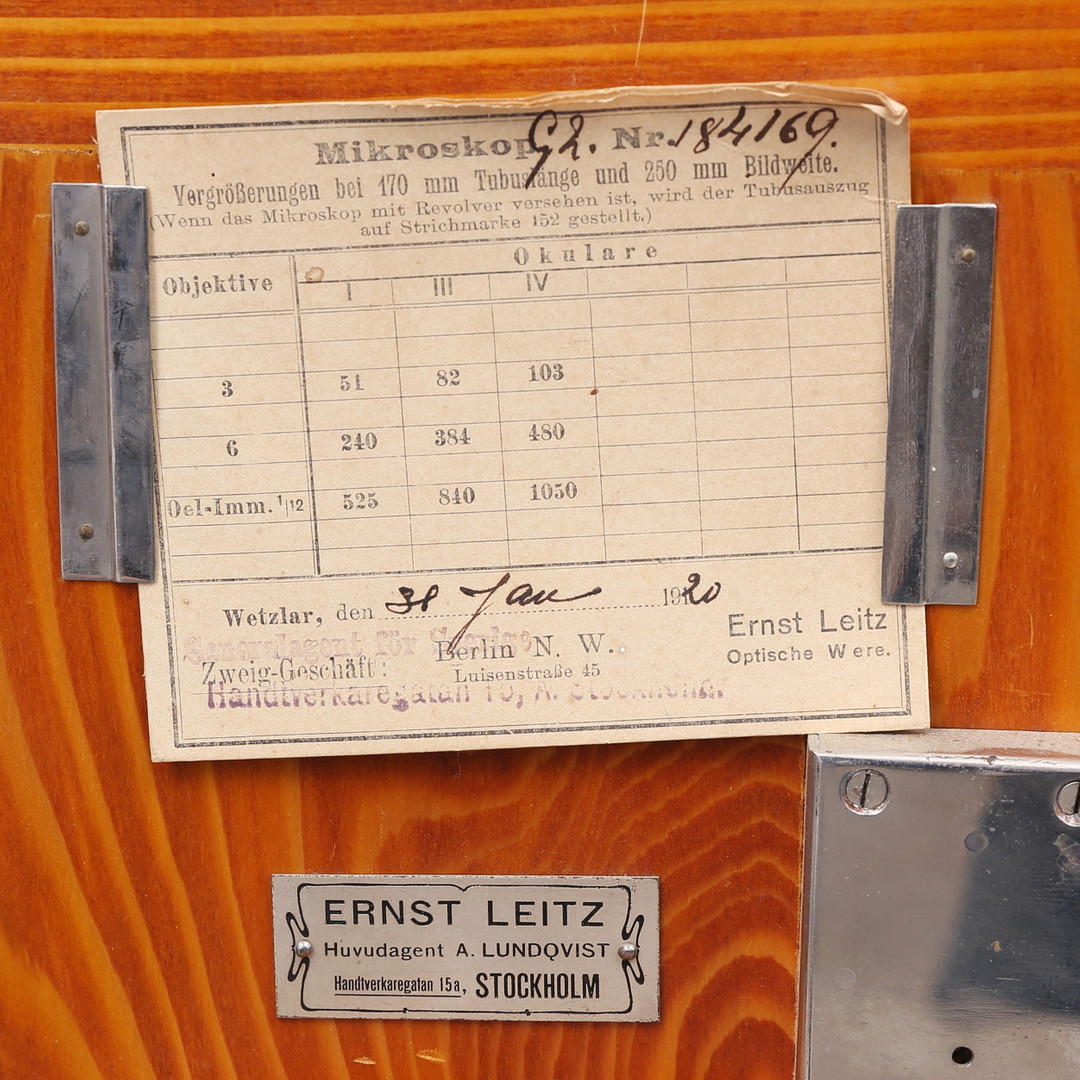 Mikroskop G2. Nr. 184169.
Vergrößerungen bei 170 mm Tubuslänge und 250 mm Bildweite.
(Wenn das Mikroskop mit Revolver versehen ist, wird der Tubusauszug
auf Strichmarke 152 gestellt.)
Objektive Okulare
I III IV
3 51 82 103
6 240 384 480
Oel-Imm. 1/12 525 840 1050
Wetzlar, den 31 Jan 1920
Ernst Leitz
Optische Werke.
Generalagent för Sverige
Zweig-Geschäft: Berlin N. W.
Luisenstraße 45
Handtverkaregatan 15, A. Stockholm.
ERNST LEITZ
Huvudagent A. LUNDQVIST
Handtverkaregatan 15a, STOCKHOLM